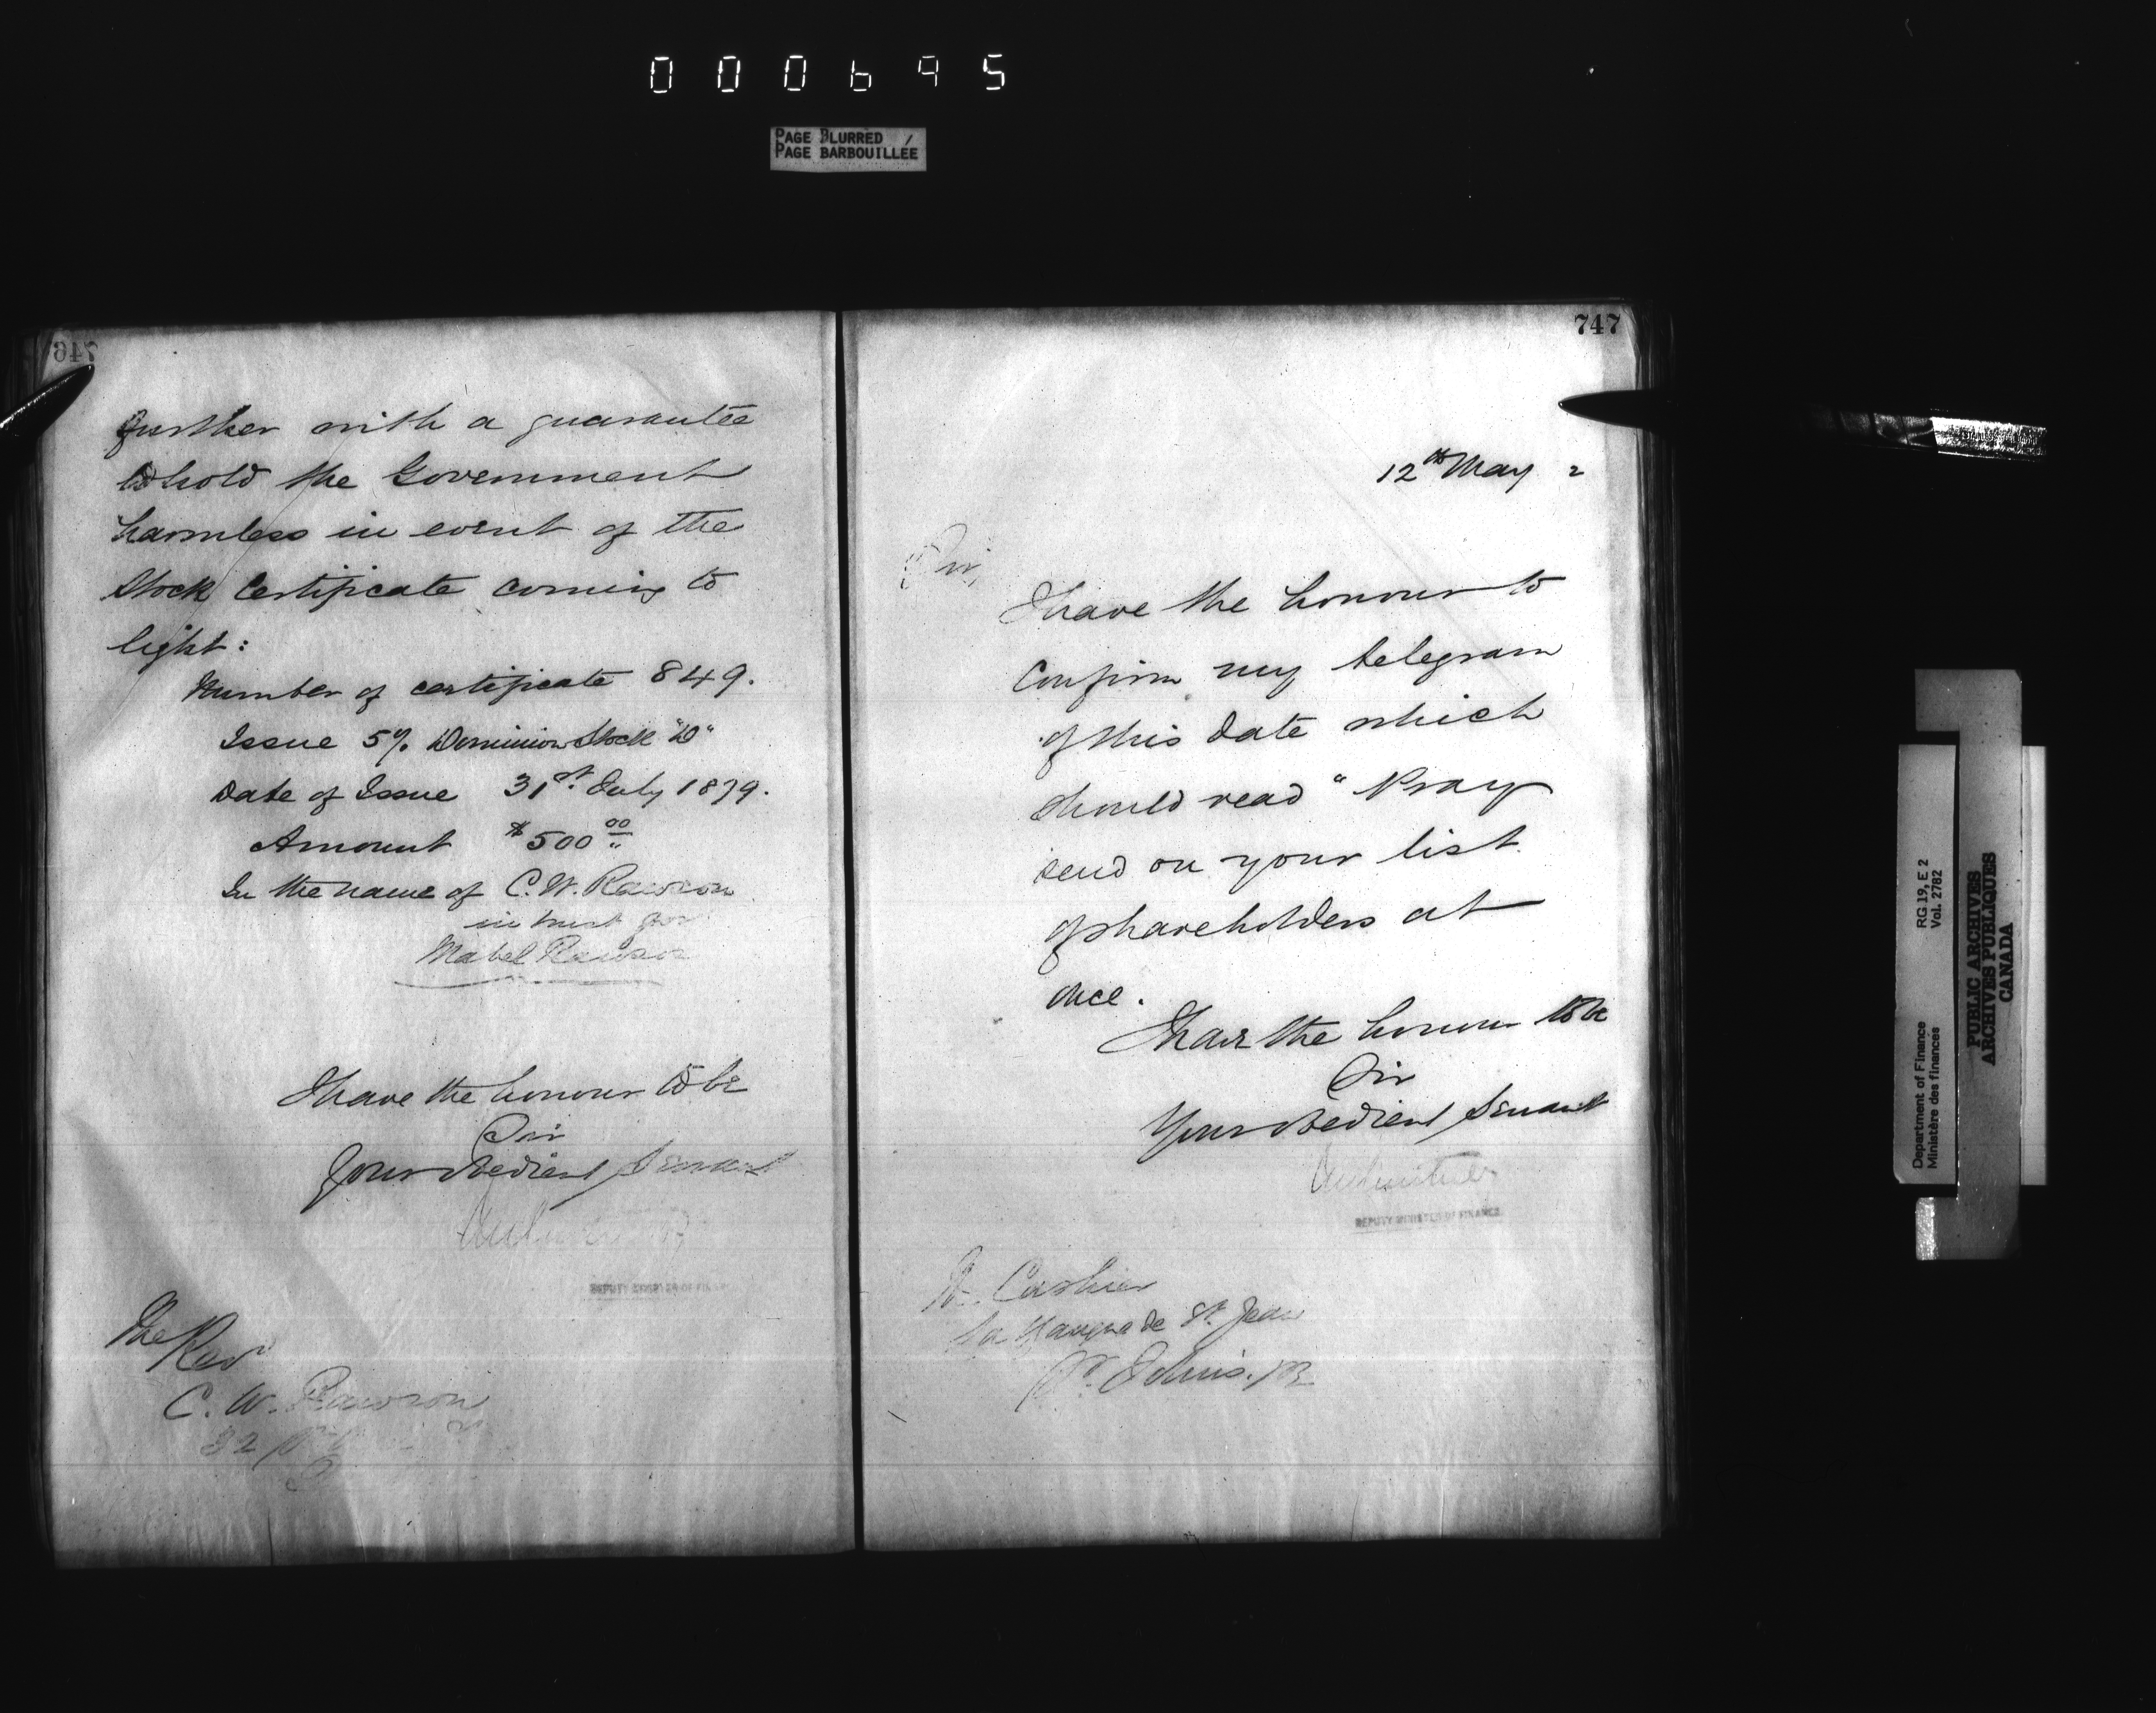 000695
PAGE BLURRED
PAGE BARBOUILLÉE
746
further with a guarantee
to hold the Government
harmless in event of the
Stock Certificate coming to
light:
Number of certificate 849.
Issue 5% Dominion Stock "D"
Date of Issue 31st July 1879.
Amount $500 00
In the name of C. W. Rawson
in trust for
Mabel Rawson
I have the honour to be
Sir
Your obedient Servant
DEPUTY OF FINANCE
The Rev
C. W. Rawson
32
747
12th May 2
Sir,
I have the honour to
confirm my telegram
of this date which
should read "Pray
send on your list
of shareholders at
once.
I have the honour to be
Sir
Your obedient Servant
DEPUTY MINISTER OF FINANCE
Cashier
La Banque de St. Jean
St. Johns. PQ
Department of Finance
Ministère des finances
RG 19, E 2
Vol. 2782
PUBLIC ARCHIVES
ARCHIVES PUBLIQUES
CANADA